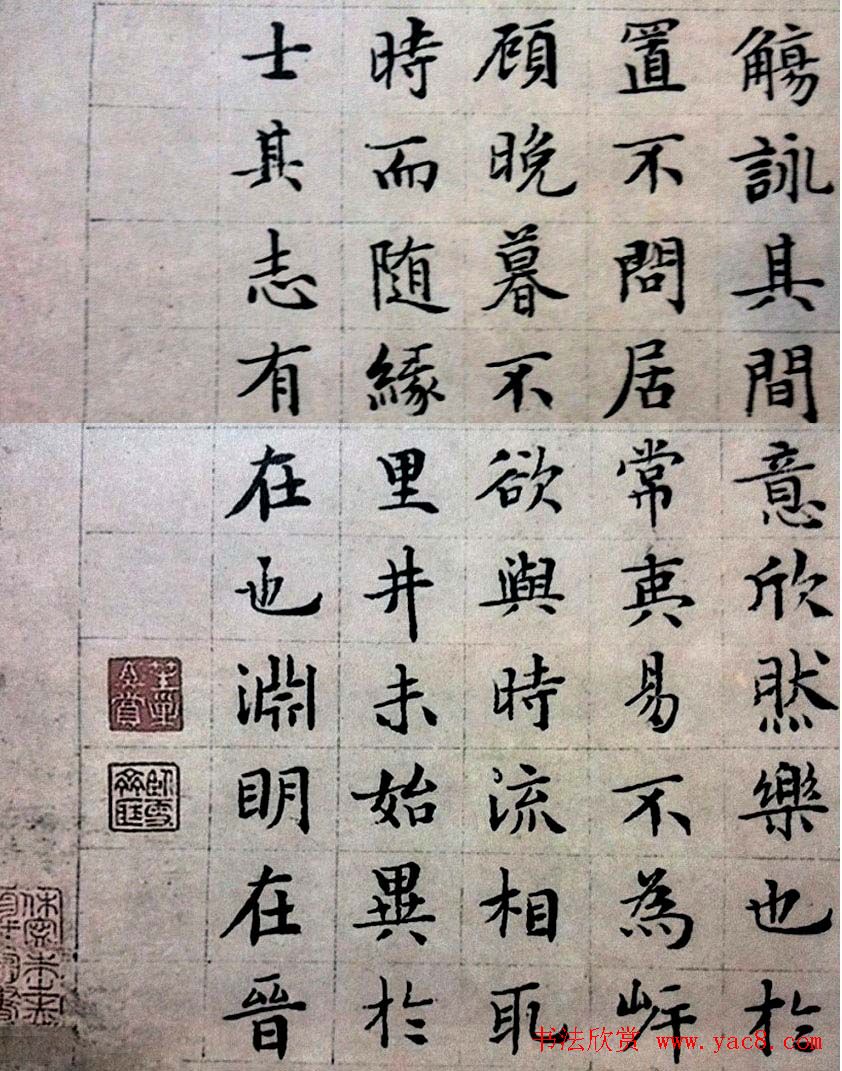 觴詠其間意欣然樂也於
置不問居常夷易不為屽
頋晚暮不欲與時流相取
時而随緣里井未始異於
士其志有在也淵明在晉
书法欣赏 www.yac8.com